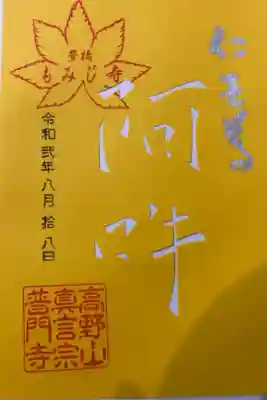 仁王尊
阿吽
豊橋
もみじ寺
令和弐年八月拾八日
高野山
真言宗
普門寺